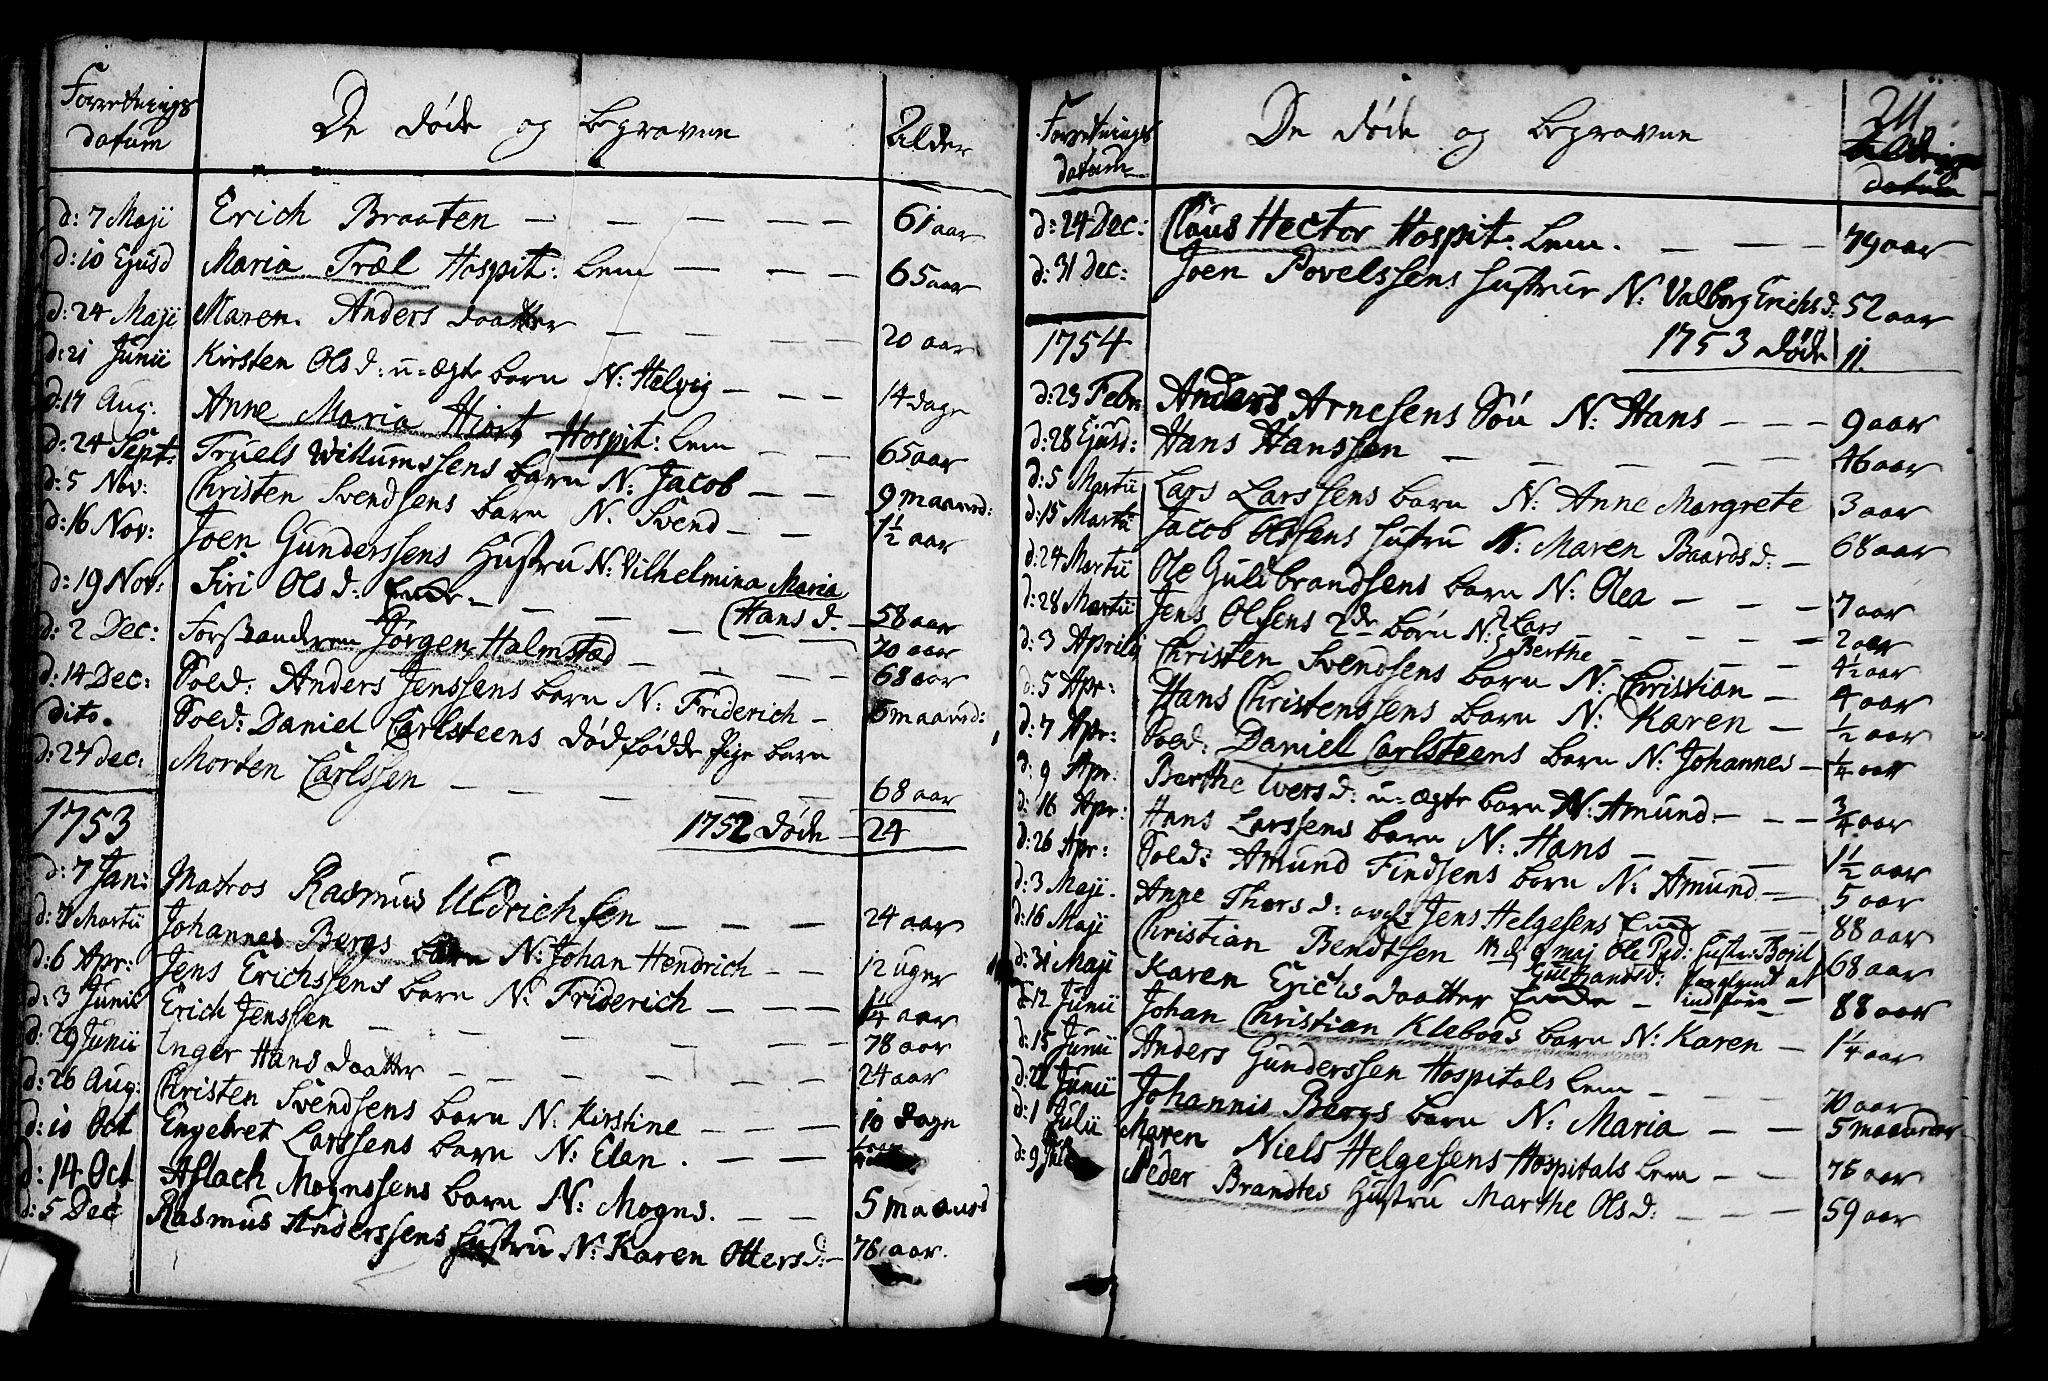 Forretnings datum
De döde og begravne
Alder
d: 7 Maji Erich Braaten 61 aar
d: 10 Ejusd Maria Træl Hospit: Lem 65 aar
d: 24 Maji Maren Anders daatter 20 aar
d: 21 Junii Kirsten Ols d: u-ægte barn N: Helvig 14 dage
d: 17 Aug: Anne Maria Hiort Hospit: Lem 65 aar
d: 24 Sept: Truels Willumssens barn N: Jacob 9 maaned:
d: 5 Nov: Christen Svendsens barn N: Svend 1½ aar
d: 16 Nov: Joen Gunderssens Hustru N: Vilhelmina Maria
(Hans d. 58 aar
d: 19 Nov: Siri Ols d: Enke 70 aar
d: 2 Dec: Forstanderen Jörgen Halmstad 68 aar
d: 14 Dec: Sold: Anders Jenssens barn N: Friderich 6 maaned:
dito. Sold: Daniel Carlsteens dödfödde Pige barn
d: 24 Dec: Morten Carlssen 68 aar
1752 döde 24
1753
d: 7 Jan: Matros Rasmus Uldrichsen 24 aar
d: 7 Martii Johannes Bergs barn N: Johan Hendrich 12 uger
d: 6 Apr: Jens Erichssens barn N: Friderich 1¼ aar
d: 3 Junii Erich Jenssen 78 aar
d: 29 Junii Inger Hans daatter 24 aar
d: 26 Aug: Christen Svendsens barn N: Kirstine 10 dage
d: 10 Oct Engebret Larssens barn N: Elen.
d: 14 Oct Aslach Mognssens barn N: Mogns. 5 maaned
d: 5 Dec Rasmus Anderssens Hustru N: Karen Otters d: 76 aar.
Forretnings datum
De döde og begravne
211
datum
d: 24 Dec: Claus Hector Hospit: Lem. 79 aar
d: 31 Dec: Joen Povelssens Hustrue N: Valborg Erichs d: 52 aar
1753 döde 11.
1754
d: 23 Febr: Anders Arnesens Sön N: Hans 9 aar
d: 28 Ejusd: Hans Hanssen 46 aar
d: 5 Martii Lars Larssens barn N: Anne Margrete 3 aar
d: 15 Martii Jacob Olssens Hustru N: Maren Baards d: 68 aar
d: 24 Martii Ole Guldbrandsens barn N: Olea 7 aar
d: 28 Martii Jens Olsens 2de börn N: Lars 2 aar
Berthe 4½ aar
d: 3 Aprilis Christen Svendsens barn N: Christian 4 aar
d: 5 Apr: Hans Christenssens barn N: Karen ½ aar
d: 7 Apr: Sold: Daniel Carlsteens barn N: Johannes ¼ aar
d: 9 Apr: Berthe Ivers d: u-ægte barn N: Amund ¾ aar
d: 16 Apr: Hans Larssens barn N: Hans 1½ aar
d: 26 Apr: Sold: Amund Findsens barn N: Amund 5 aar
d: 3 Maji. Anne Thors d: Jens Helgesens Enke 88 aar
d: 16 Maji Christian Bendtsen 68 aar
d 9 Maj Ole Hustr: Bojel
Gulbrandsd:
d: 31 Maji Karen Erichs daatter Enke 88 aar
d: 12 Junii Johan Christian Kleboes barn N: Karen 1¼ aar
d: 15 Junii Anders Gunderssen Hospitals Lem 70 aar
d: 22 Junii Johannis Bergs barn N: Maria 5 maaneder
d: 1 Julii Maren Niels Helgesens Hospitals Lem 76 aar
d: 9 Peder Brandtes Hustru Marthe Ols d: 59 aar